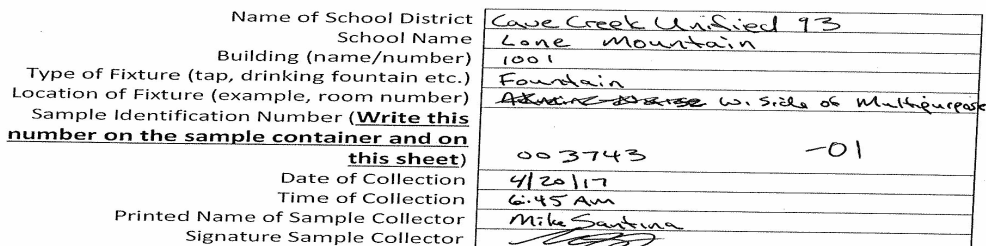 Name of School District Cave Creek Unified 93
School Name Lone Mountain
Building (name/number) 1001
Type of Fixture (tap, drinking fountain etc.) Fountain
Location of Fixture (example, room number) W. Side of Multipurpose
Sample Identification Number (Write this
number on the sample container and on
this sheet) 003743 -01
Date of Collection 4/20/17
Time of Collection 6:45 AM
Printed Name of Sample Collector Mike Santina
Signature Sample Collector